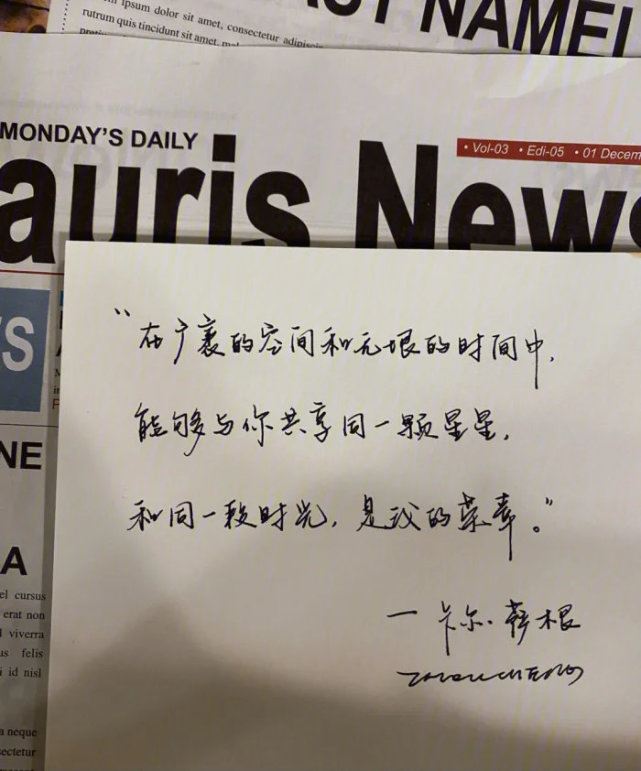 ipsum dolor sit amet, consectetur
rutrum quis tincidunt sit amet,
NAME
MONDAY'S DAILY
• Vol-03 • Edi-05 • 01 Decem
auris News
S
NE
A
el cursus
erat non
viverra
us felis
id nisl
a neque
sectetur
“在广袤的空间和无垠的时间中，
能够与你共享同一颗星星，
和同一段时光，是我的荣幸。”
一 卡尔·萨根